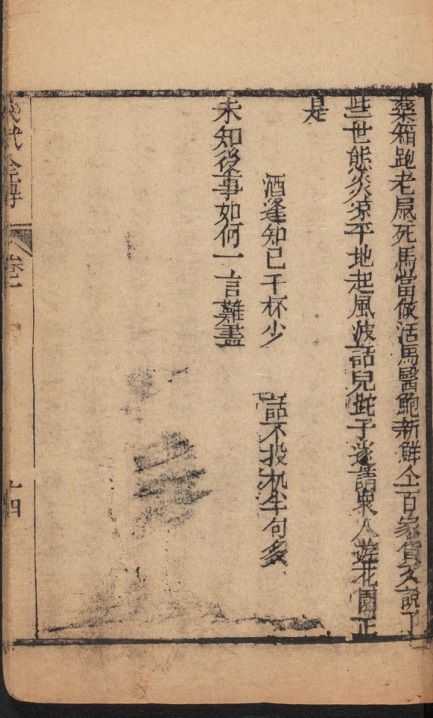 藥箱跑老屁死馬當做活馬醫鮑新鮮仝百家貨又說了
些世態炎凉平地起風波話兒此子裡請眾人遊花園正
是
酒逢知己千杯少　話不投机半句多
未知後事如何一言難盡
全傳　卷二　十四